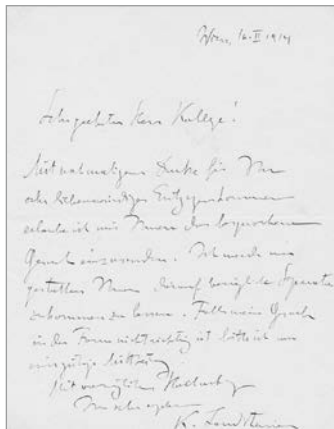 Wien, 16. II 1914
Sehr geehrter Herr Kollege!
Mit nochmaligem Danke für Ihr
sehr liebenswürdiges Entgegenkommen
erlaube ich mir Ihnen das besprochene
Gesuch einzusenden. Ich werde mir
gestatten Ihnen darauf bezügliche Separata
zukommen zu lassen. Falls mein Gesuch
in der Form nicht richtig ist bitte ich um
eine gütige Mitteilung
Mit vorzüglicher Hochachtung
Ihr sehr ergebener
K. Landsteiner